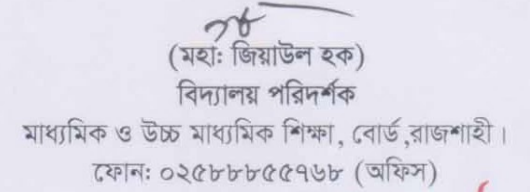 (মহা: জিয়াউল হক)
বিদ্যালয় পরিদর্শক
মাধ্যমিক ও উচ্চ মাধ্যমিক শিক্ষা, বোর্ড,রাজশাহী।
ফোন: ০২৫৮৮৮৫৫৭৬৮ (অফিস)